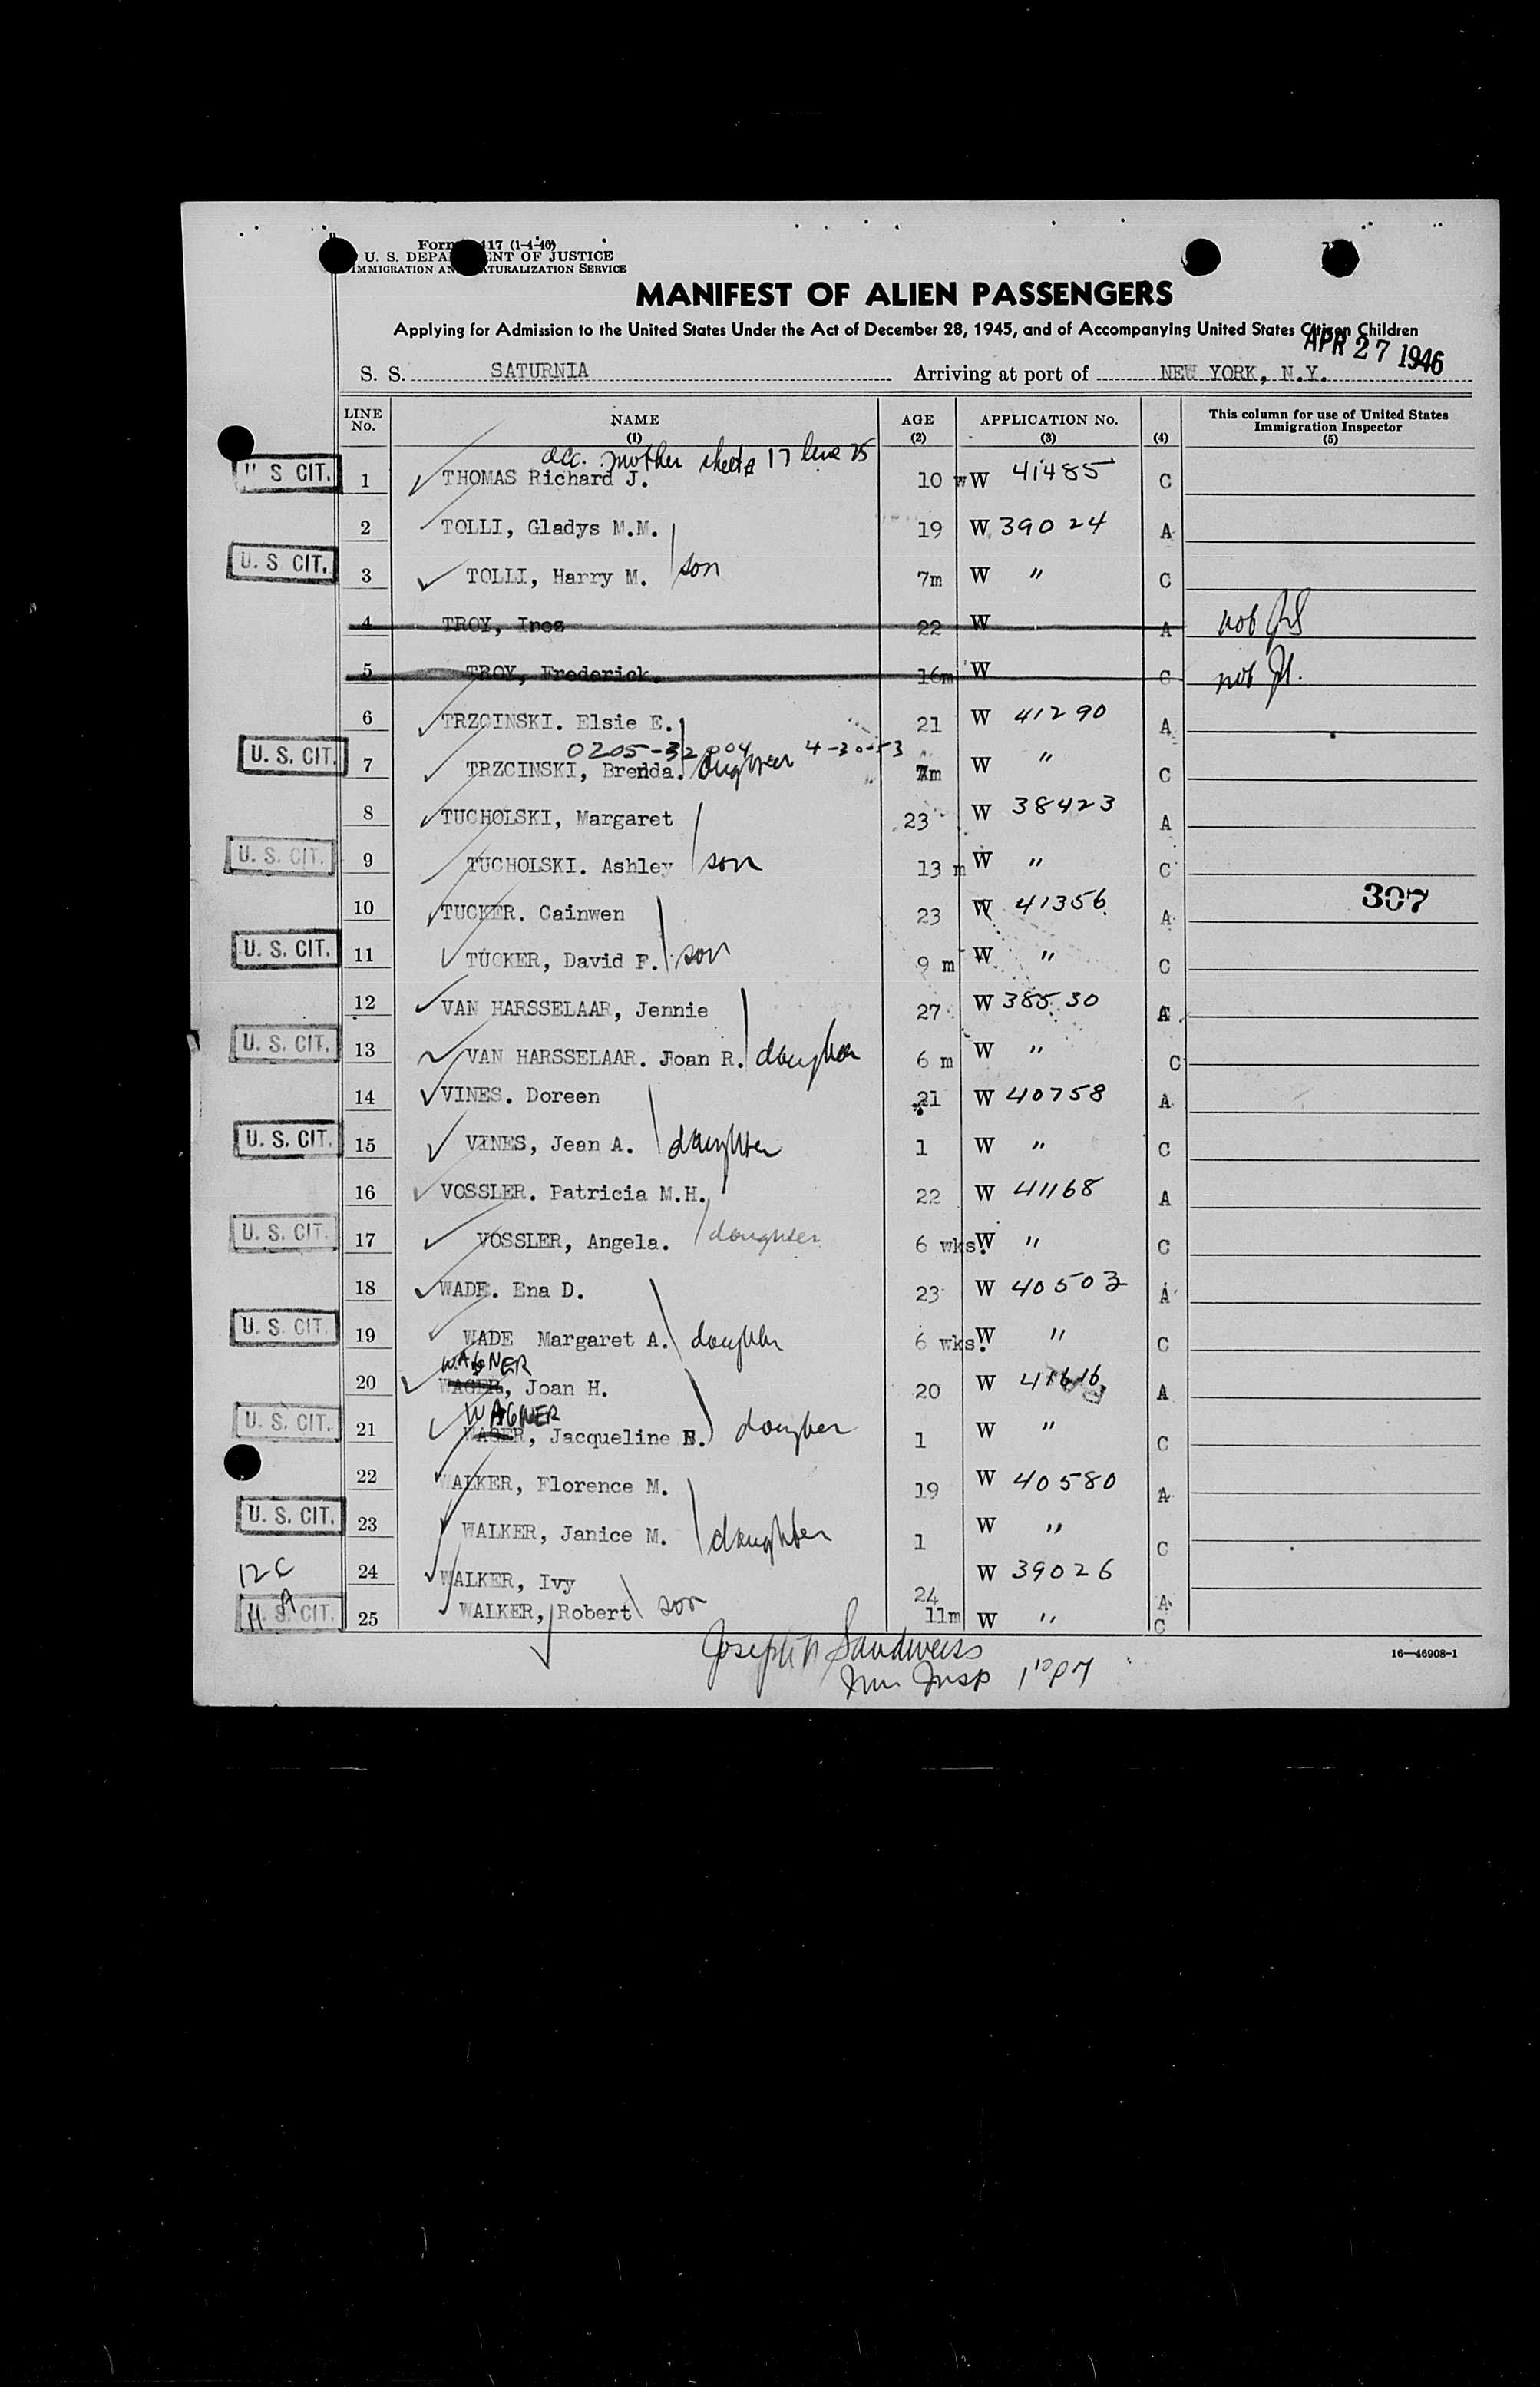 U. S. DEPARTMENT OF JUSTICE
IMMIGRATION AND NATURALIZATION SERVICE
MANIFEST OF ALIEN PASSENGERS
Applying for Admission to the United States Under the Act of December 28, 1945, and of Accompanying United States Citizen Children
APR 27 1946
S. S. SATURNIA Arriving at port of NEW YORK, N.Y.
LINE No. NAME (1) AGE (2) APPLICATION No. (3) (4) This column for use of United States Immigration Inspector (5)
acc. mother sheet 17 line 25
U S CIT. 1 THOMAS Richard J. 10 w W 41485 C
2 TOLLI, Gladys M.M. 19 W 39024 A
U. S. CIT. 3 TOLLI, Harry M. son 7m W " C
4 TROY, Inez 22 W A nob
5 TROY, Frederick. 16m W C nob
6 TRZCINSKI. Elsie E. 21 W 41290 A
0205-32004 4-30-53
U. S. CIT. 7 TRZCINSKI, Brenda. daughter 7m W " C
8 TUCHOLSKI, Margaret 23 W 38423 A
U. S. CIT. 9 TUCHOLSKI. Ashley son 13 m W " C
307
10 TUCKER. Cainwen 23 W 41356 A
U. S. CIT. 11 TUCKER, David F. son 9 m W " C
12 VAN HARSSELAAR, Jennie 27 W 38530 A
U. S. CIT. 13 VAN HARSSELAAR. Joan R. daughter 6 m W " C
14 VINES. Doreen 21 W 40758 A
U. S. CIT. 15 VINES, Jean A. daughter 1 W " C
16 VOSSLER. Patricia M.H. 22 W 41168 A
U. S. CIT. 17 VOSSLER, Angela. daughter 6 wks. W " C
18 WADE. Ena D. 23 W 40503 A
U. S. CIT. 19 WADE Margaret A. daughter 6 wks. W " C
WAGNER
20 WAGER, Joan H. 20 W 41616 A
WAGNER
U. S. CIT. 21 WAGER, Jacqueline E. daughter 1 W " C
22 WALKER, Florence M. 19 W 40580 A
U. S. CIT. 23 WALKER, Janice M. daughter 1 W " C
12 C 24 WALKER, Ivy 24 W 39026 A
11 A
U. S. CIT. 25 WALKER, Robert son 11m W " C
16—46908-1
Joseph Sandweiss
Imm Insp